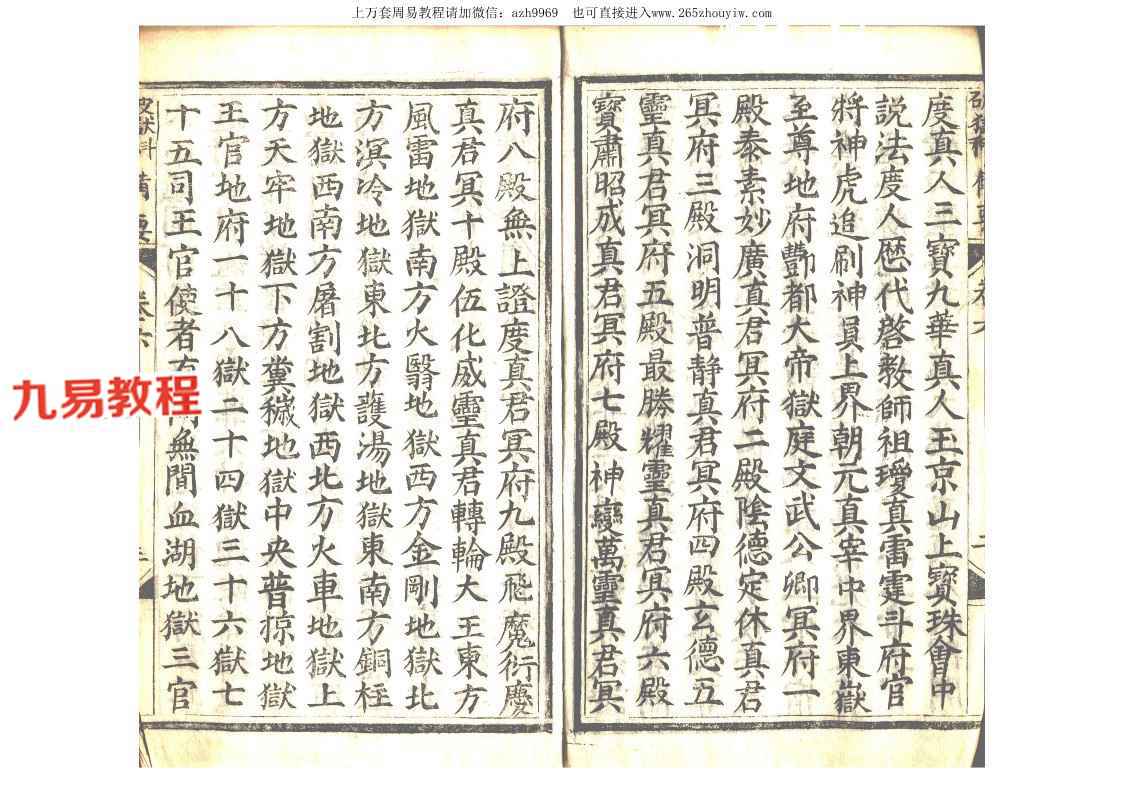 上万套周易教程请加微信：azh9969　也可直接进入www.265zhouyiw.com
度真人三寶九華真人玉京山上寶珠會中
説法度人歷代啓教師祖瓊真雷霆斗府官
將神虎追刷神員上界朝元真宰中界東嶽
至尊地府酆都大帝獄庭文武公卿冥府一
殿泰素妙廣真君冥府二殿陰德定休真君
冥府三殿洞明普靜真君冥府四殿玄德五
靈真君冥府五殿最勝耀靈真君冥府六殿
寶肅昭成真君冥府七殿神變萬靈真君冥
府八殿無上證度真君冥府九殿飛魔衍慶
真君冥十殿伍化威靈真君轉輪大王東方
風雷地獄南方火翳地獄西方金剛地獄北
方溟冷地獄東北方鑊湯地獄東南方銅柱
地獄西南方屠割地獄西北方火車地獄上
方天牢地獄下方糞穢地獄中央普掠地獄
王官地府一十八獄二十四獄三十六獄七
十五司王官使者 無間血湖地獄三官
九易教程